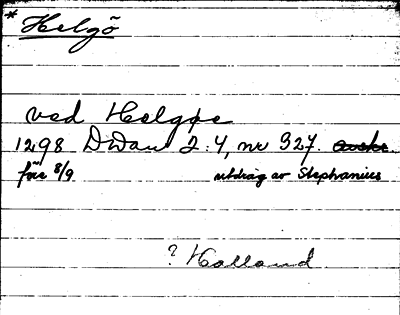 * Helgö
ved Helgøe
1298 DDan 2:4, nr 327.
före 8/9 utdrag av Stephanius
? Halland